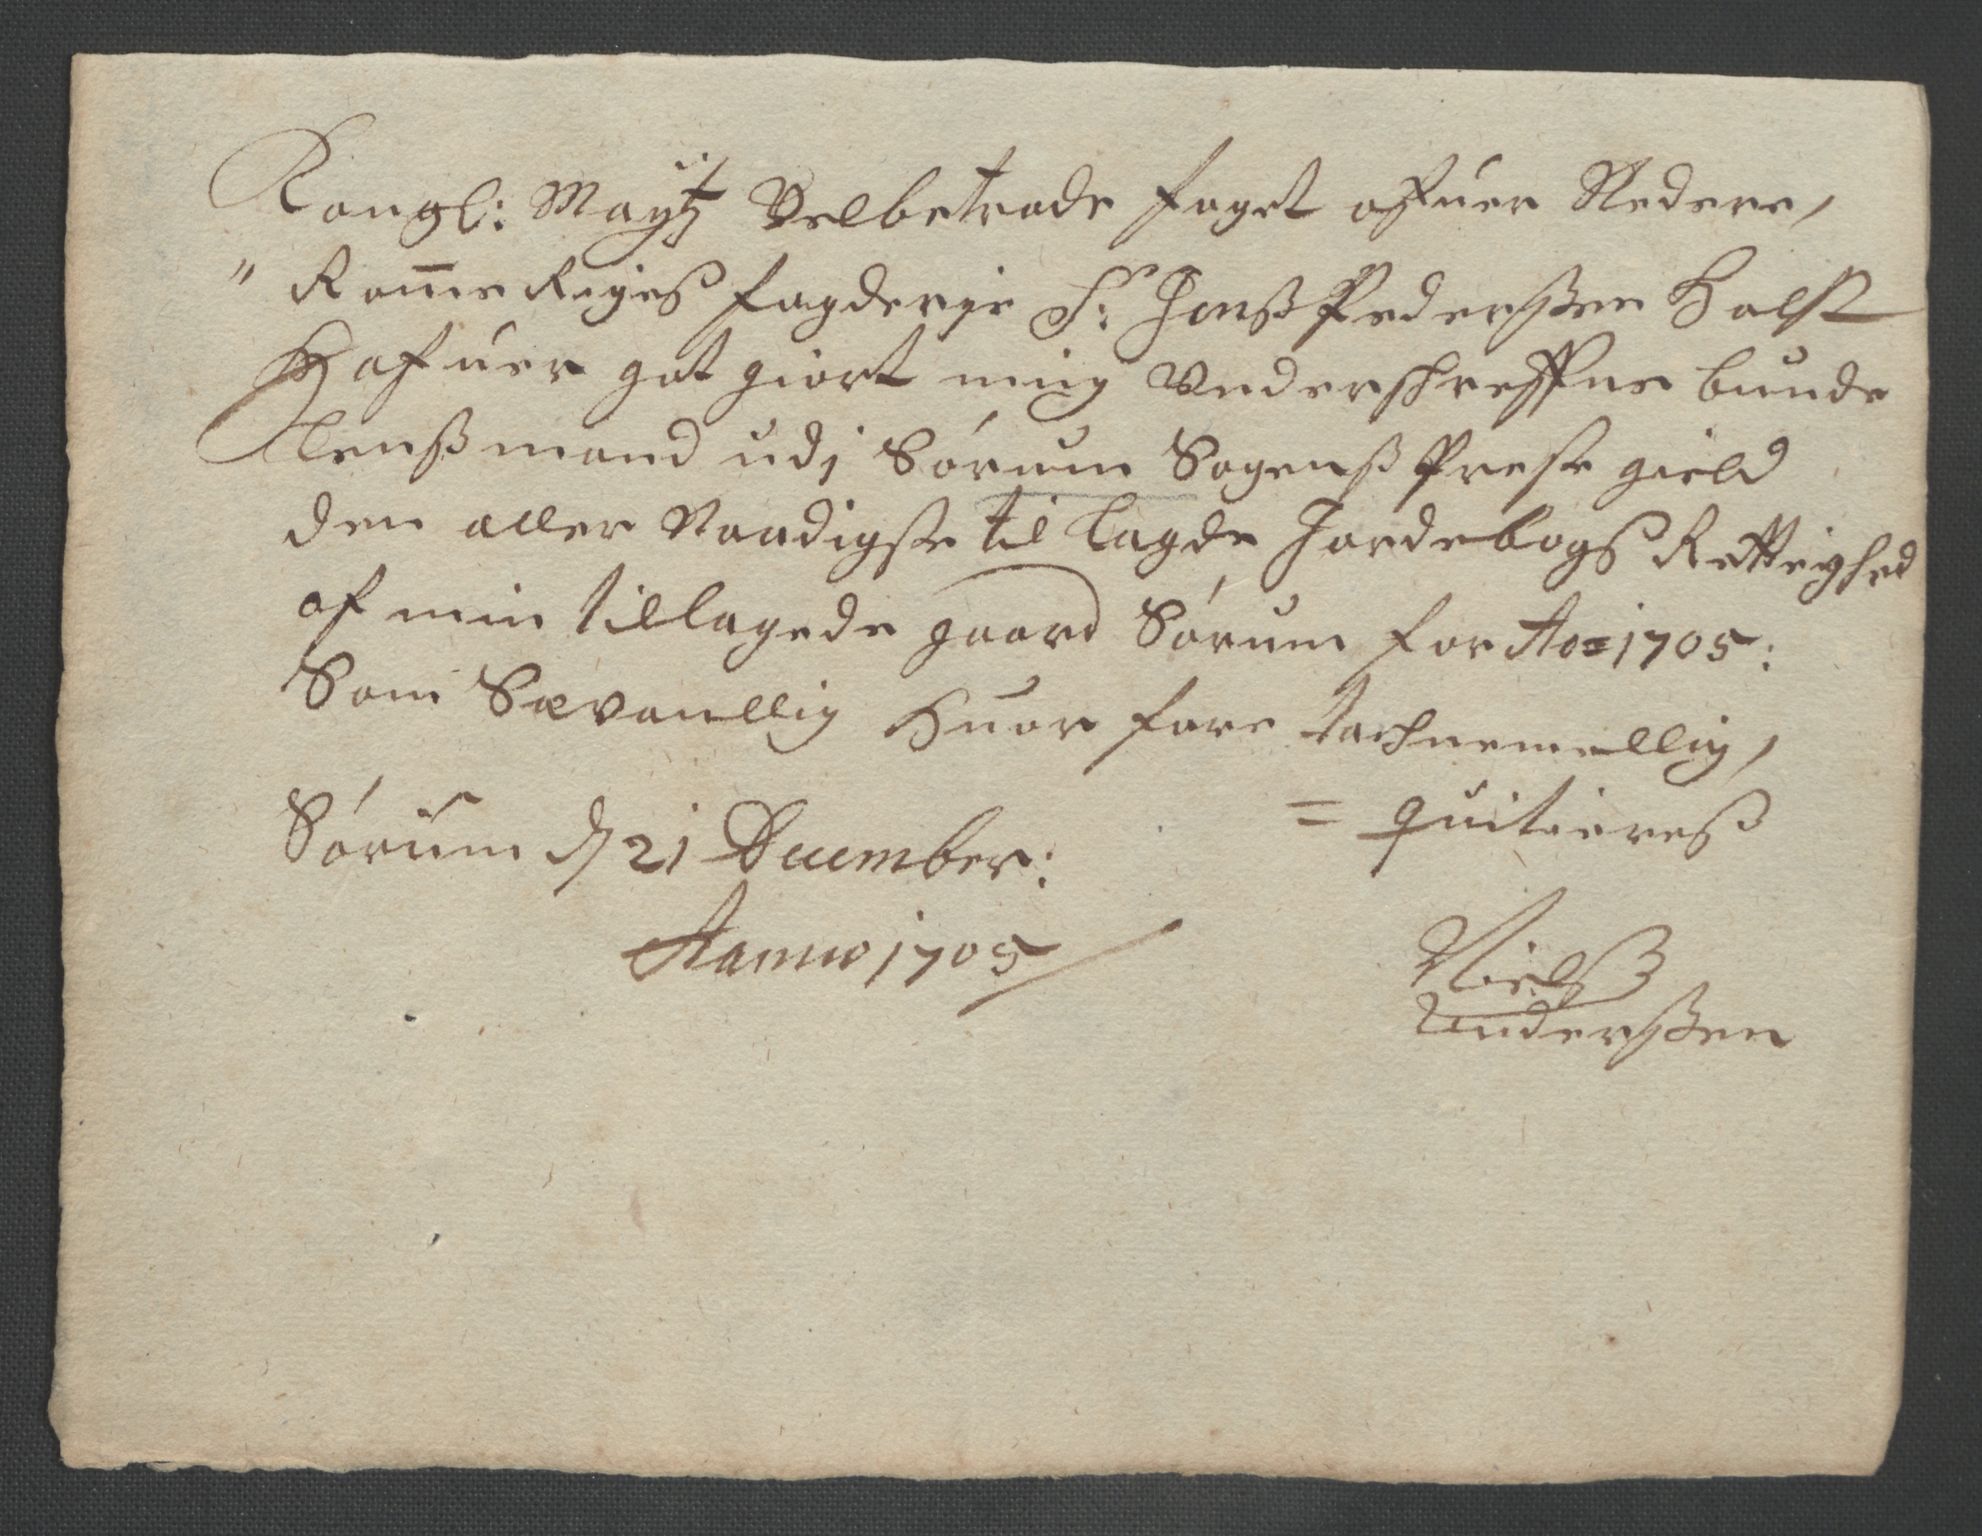 Kongl: Maytz Velbetrode foget ofuer Nedere,
" Rom̅e Riges fogderje Sr: Jenß Pederßen Holst
Hafuer got giort mig Underschreffne bunde
Lenßmand udj Sørum Sogenß Preste gield
den aller Naadigste til lagde Jordebogs Rettighed
af min tillagede gaard Sørum for Ao= 1705:
Som Sædvanllig huor fore tachnemellig,
= quitieres
Sørum d 21 December:
Aanno 1705
Nielß
Anderßen